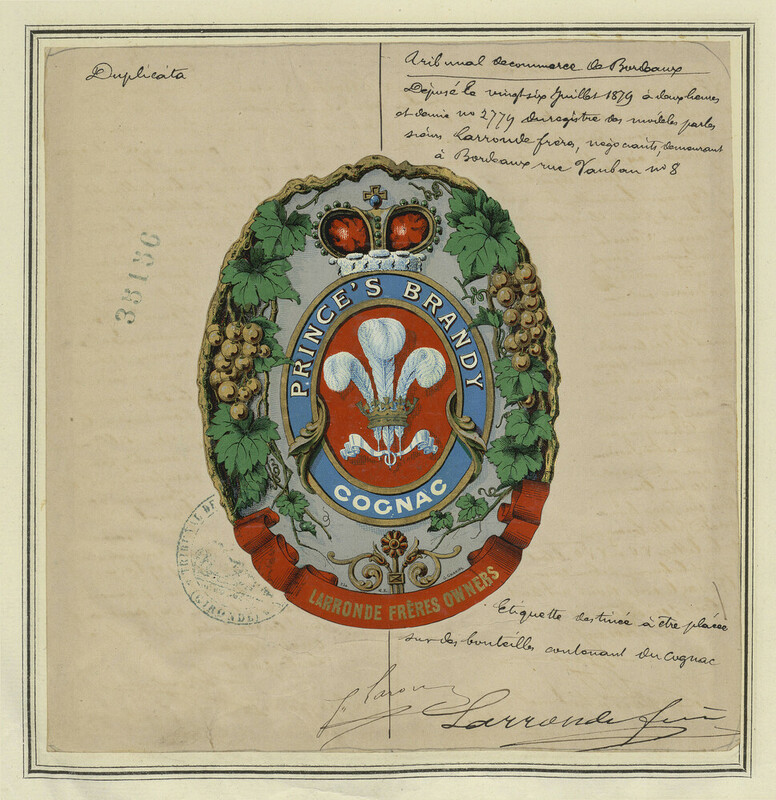 Duplicata
Tribunal de commerce de Bordeaux
Déposé le vingt six Juillet 1879 à deux heures
et demie no 2779 du registre des modèles par les
sieurs Larronde frères, négociants, demeurant
à Bordeaux rue Vauban no 8
35130
PRINCE'S BRANDY
COGNAC
TRIBUNAL DE
(GIRONDE)
LARRONDE FRÈRES OWNERS
Etiquette destinée à être placée
sur des bouteilles contenant du Cognac
Larronde frères